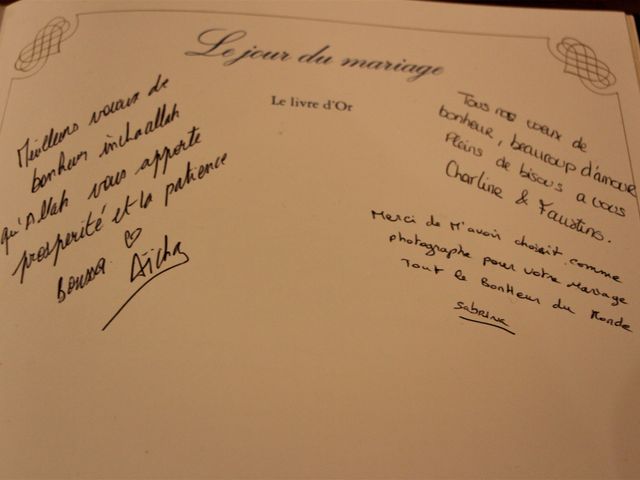 Le jour du mariage
Le livre d'Or
Meilleurs voeux de
bonheur inchaallah
qu'Allah vous apporte
prosperité et la patience
Boussa ♡ Aïcha
Tous nos voeux de
bonheur, beaucoup d'amour
Pleins de bisous a vous
Charline & Faustino.
Merci de M'avoir choisit comme
photographe pour votre Mariage
Tout le Bonheur du Monde
Sabrina